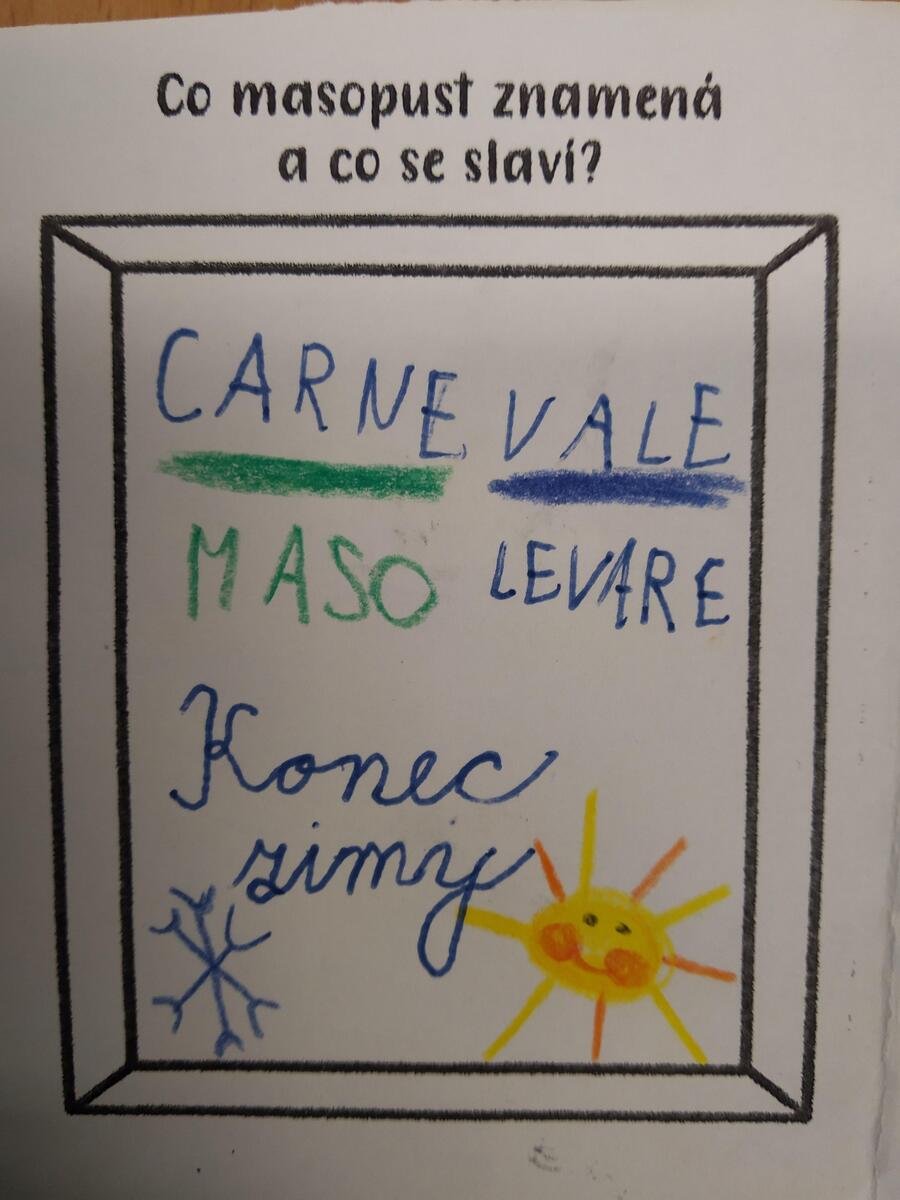 Co masopust znamená
a co se slaví?
CARNEVALE
MASO LEVARE
Konec
zimy